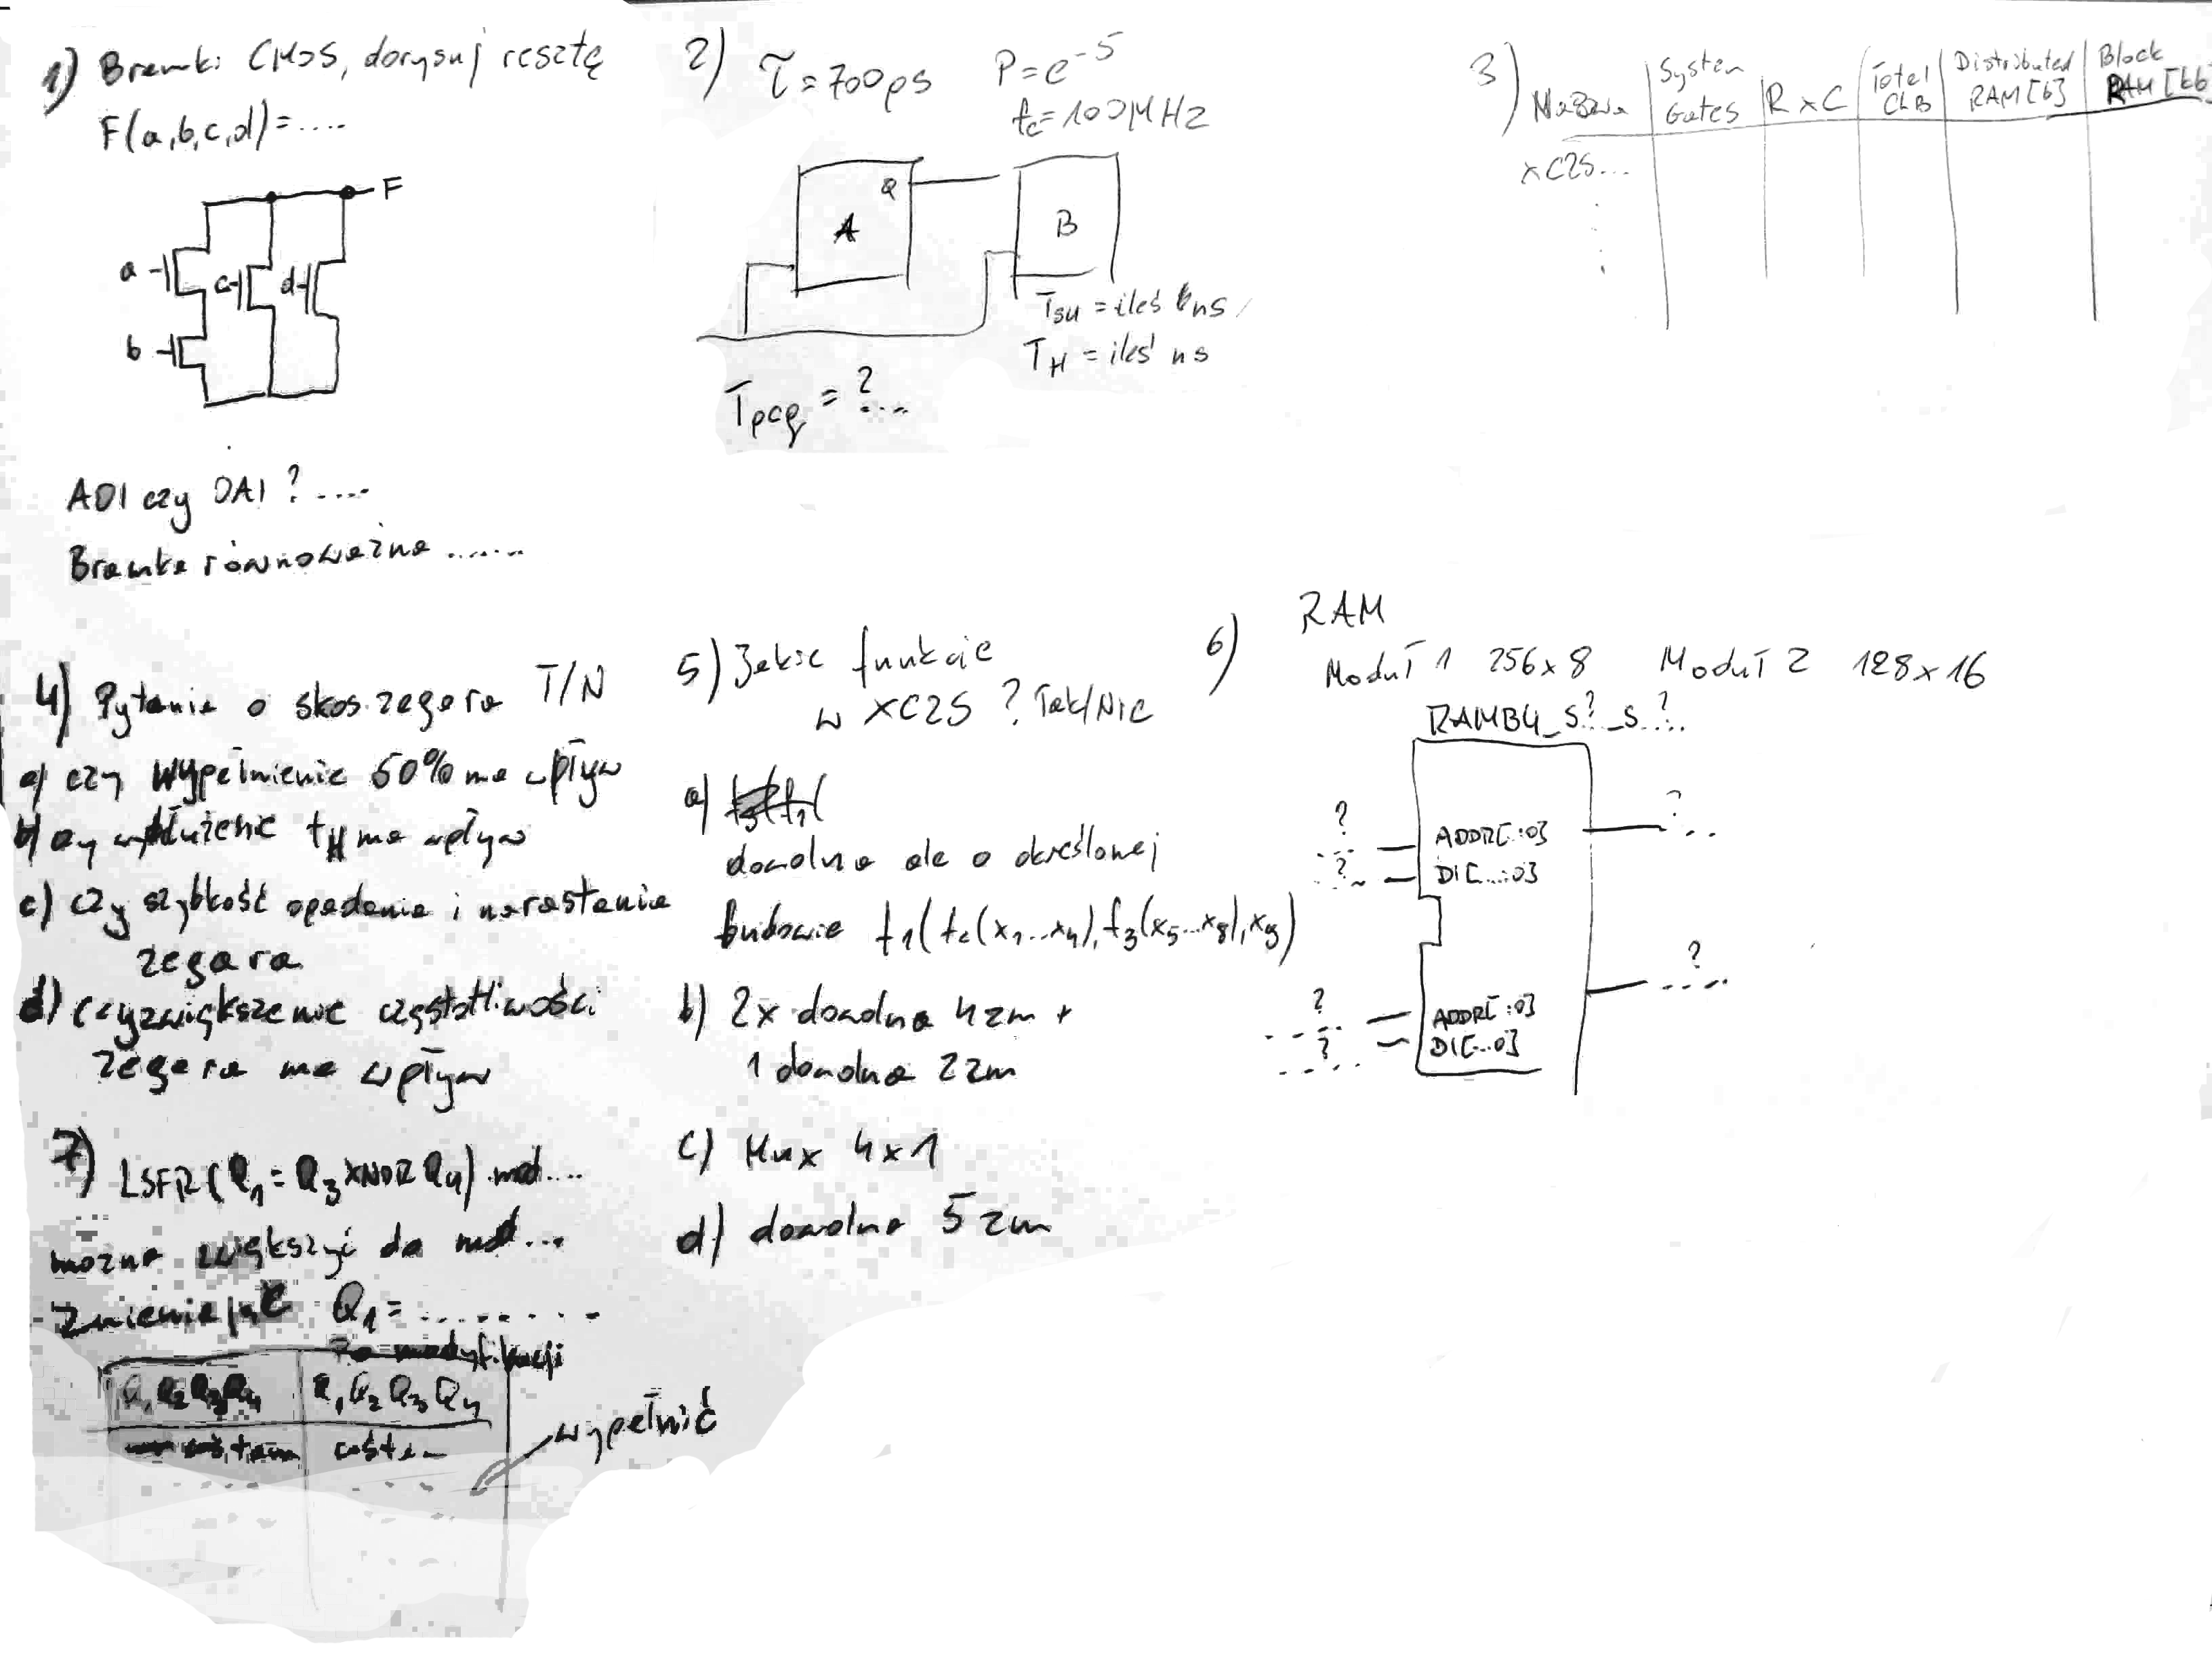 1) Bramki CMOS, dorysuj resztę
F(a,b,c,d)=....
F
a
c
d
b
AOI czy OAI ? ....
Bramka równoważna ......
2) τ = 700ps P=e⁻⁵
fc=100MHz
Q
A
B
Tsu = ileś ns
TH = ileś ns
Tpcq = ?...
3) Nazwa System Gates R x C Total CLB Distributed RAM [b] Block RAM [kb]
XC2S...
4) Pytanie o skos zegara T/N
a) czy wypełnienie 50% ma wpływ
b) czy wydłużenie tH ma wpływ
c) czy szybkość opadania i narastania
zegara
d) czy zwiększenie częstotliwości
zegara ma wpływ
5) Jakie funkcje
w XC2S ? Tak/Nie
a)
dowolna ale o określonej
budowie f1(f2(x1...x4), f3(x5...x8), x9)
b) 2x dowolna 4zm +
1 dowolna 2zm
c) Mux 4x1
d) dowolna 5zm
6) RAM
Moduł 1 256x8 Moduł 2 128x16
RAMB4_S?.._S.?..
? ADDR[..:0] ?
? DI[...:0]
? ADDR[..:0] ?
? DI[...:0]
7) LSFR (Q1 = Q3 XNOR Q4) mod....
można zwiększyć do mod...
Zmieniając Q1 = ........
Po modyfikacji
Q1 Q2 Q3 Q4 Q1 Q2 Q3 Q4
coś tam coś tam
wypełnić